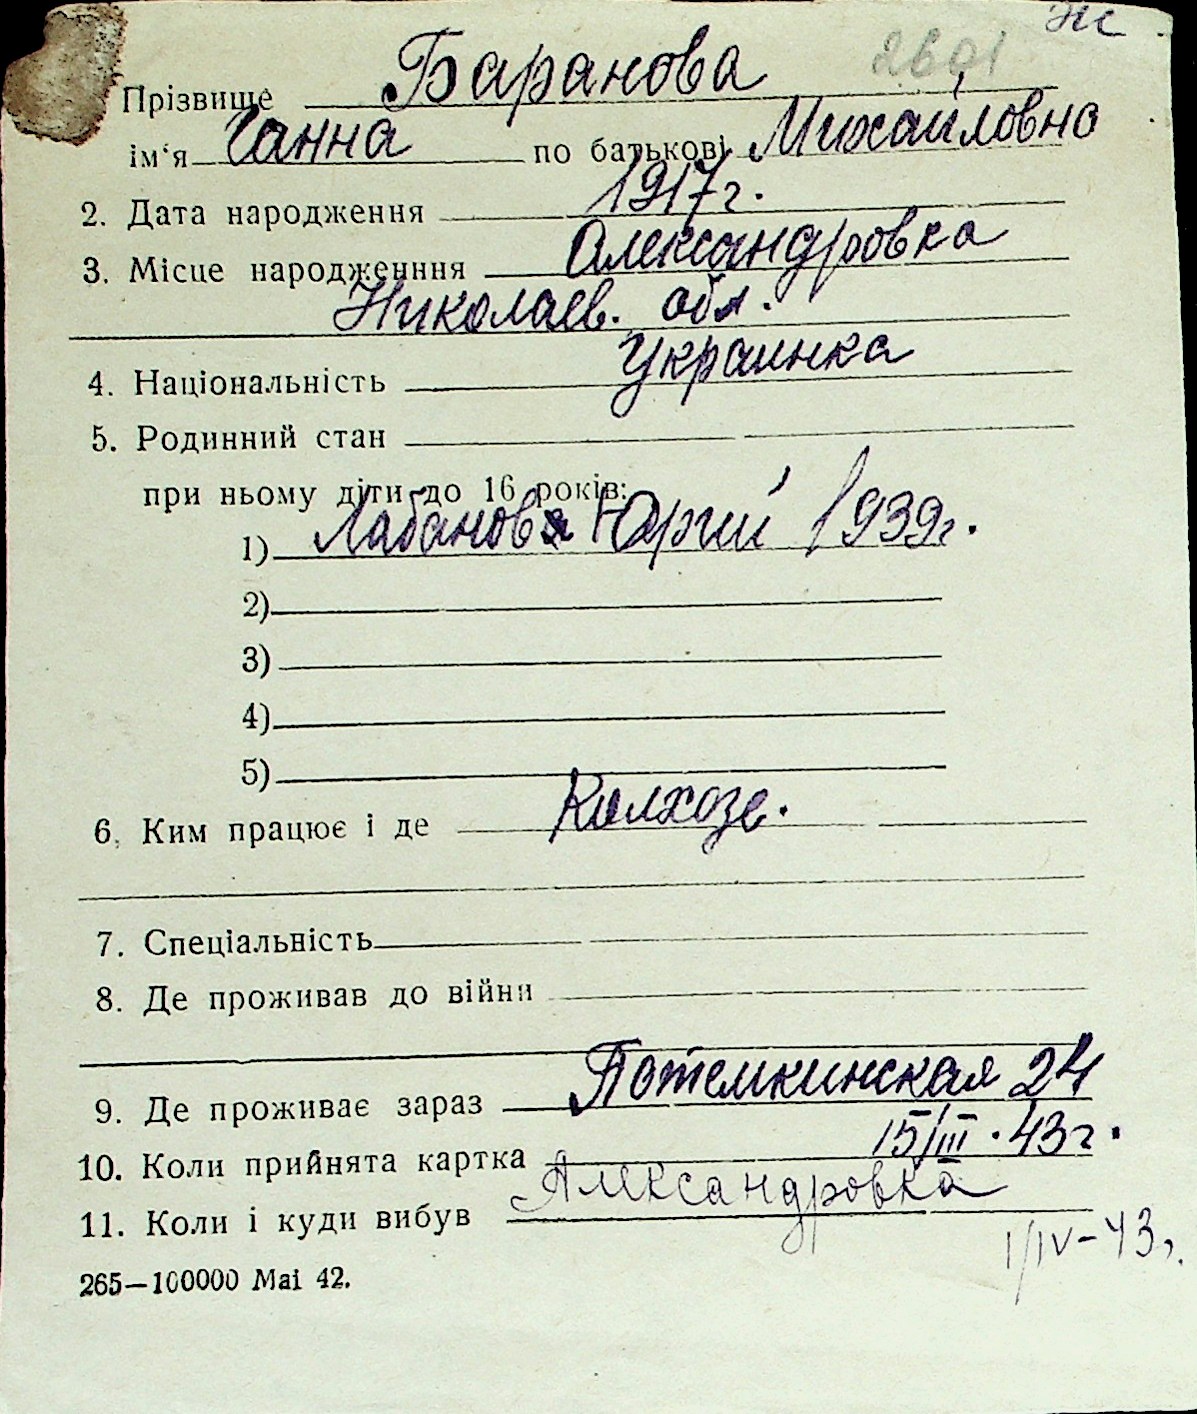 Жс
2601
Прізвище Баранова
ім‘я Ганна по батькові Михайловна
2. Дата народження 1917 г.
3. Місце народженння Александровка
Николаев. обл.
4. Національність Украинка
5. Родинний стан
при ньому діти до 16 років:
1) Лабанов Юрий 1939 г.
2)
3)
4)
5)
6. Ким працює і де Колхозе.
7. Спеціальність
8. Де проживав до війни
9. Де проживає зараз Потемкинская 24
10. Коли прийнята картка 15/III. 43 г.
11. Коли і куди вибув Александровка
1/IV-43 г.
265—100000 Mai 42.